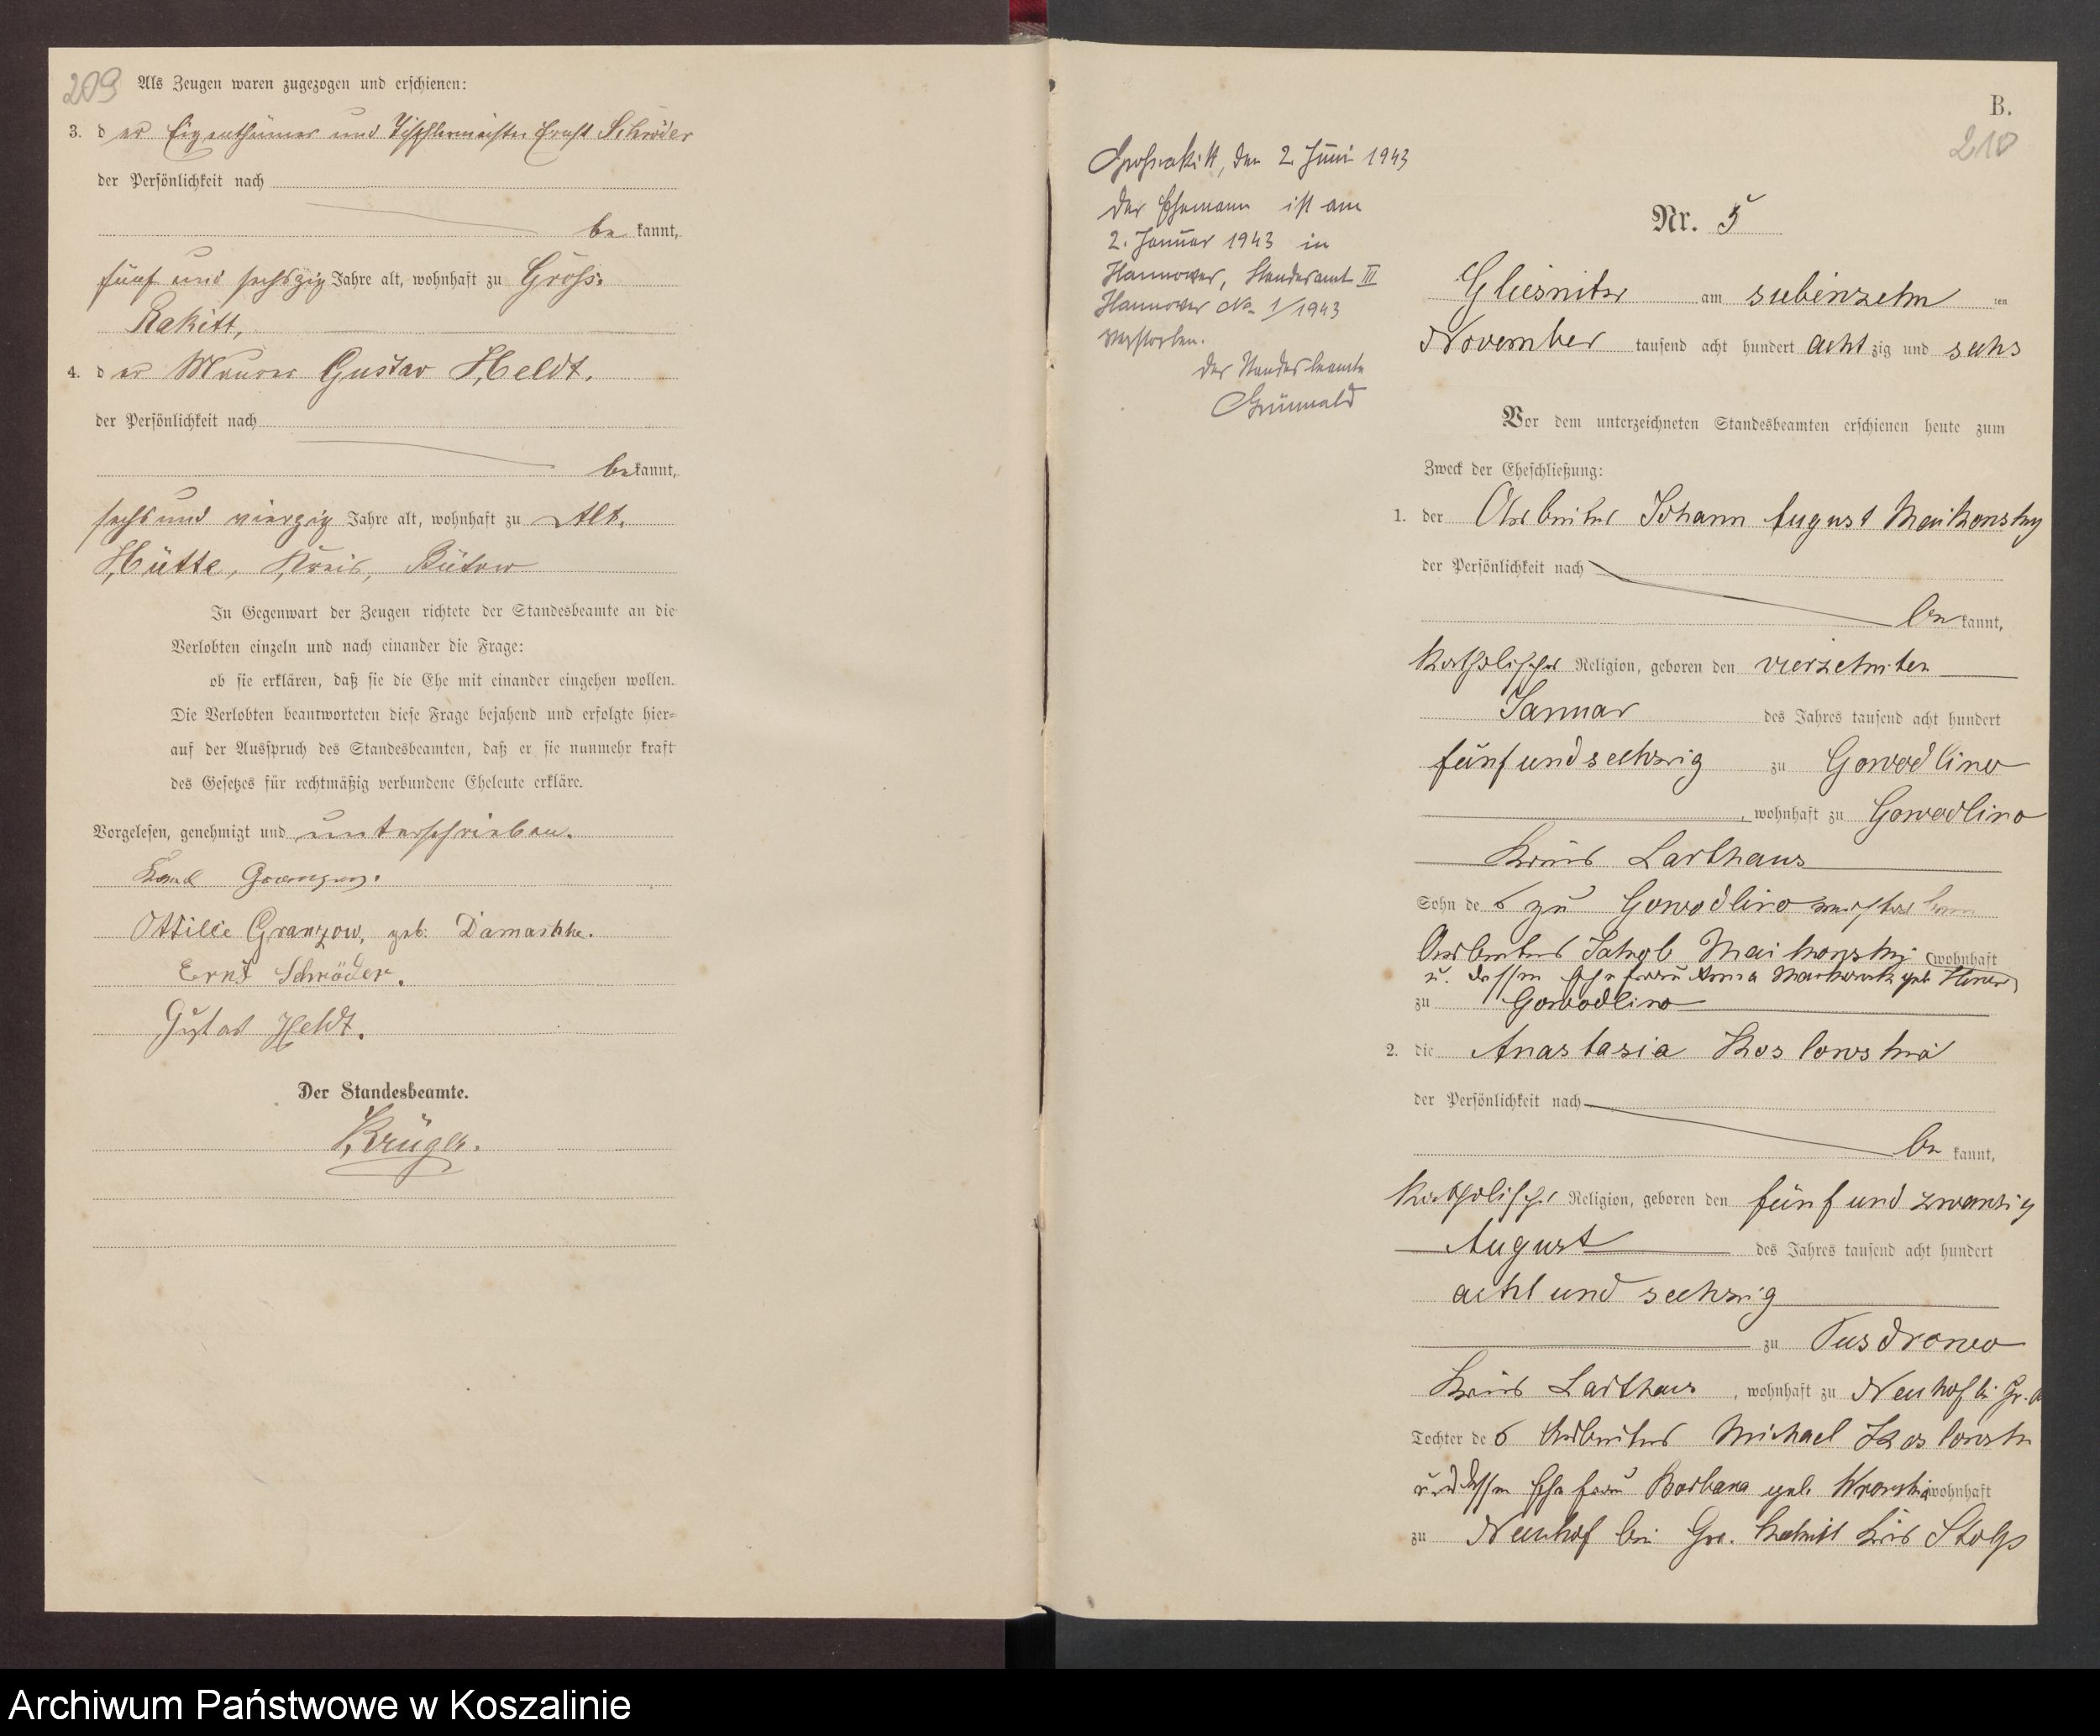 209
Als Zeugen waren zugezogen und erschienen:
3. der Eigenthümer und Tischlermeister Ernst Schröder
der Persönlichkeit nach
be kannt,
fünf und sechszig Jahre alt, wohnhaft zu Groß-
Rakitt,
4. der Maurer Gustav Heldt,
der Persönlichkeit nach
be kannt,
sechs und vierzig Jahre alt, wohnhaft zu Alt-
Hütte, Kreis, Bütow
In Gegenwart der Zeugen richtete der Standesbeamte an die
Verlobten einzeln und nach einander die Frage:
ob sie erklären, daß sie die Ehe mit einander eingehen wollen.
Die Verlobten beantworteten diese Frage bejahend und erfolgte hier-
auf der Ausspruch des Standesbeamten, daß er sie nunmehr kraft
des Gesetzes für rechtmäßig verbundene Eheleute erkläre.
Vorgelesen, genehmigt und unterschrieben.
Ottilie Granzow, geb. Damaschke.
Ernst Schröder.
Gustav Heldt.
Der Standesbeamte.
Krüger.
B.
210
Großrakitt, den 2. Juni 1943
Der Ehemann ist am
2. Januar 1943 in
Hannover, Standesamt III
Hannover No. 1/1943
verstorben.
Der Standesbeamte
Grünwald
Nr. 5
Gliesnitz am siebenzehn ten
November tausend acht hundert achtzig und sechs
Vor dem unterzeichneten Standesbeamten erschienen heute zum
Zweck der Eheschließung:
1. der Arbeiter Johann August Maikowsky
der Persönlichkeit nach
be kannt,
katholischer Religion, geboren den vierzehnten
Januar des Jahres tausend acht hundert
fünf und sechzig zu Gowodlino
, wohnhaft zu Gowodlino
Kreis Carthaus
Sohn des zu Gowodlino verstorbenen
Arbeiters Jakob Maikowski wohnhaft
u. dessen Ehefrau Anna geb.
zu Gowodlino
2. die Anastasia Koslowska
der Persönlichkeit nach
be kannt,
katholischer Religion, geboren den fünf und zwanzig
August des Jahres tausend acht hundert
acht und sechzig
zu Tusdrowo
Kreis Carthaus, wohnhaft zu Neuhof bei Gr.
Tochter des Arbeiters Michael Koslowski
und dessen Ehefrau Barbara geb. wohnhaft
zu Neuhof bei Gr. Rakitt Kreis Stolp
Archiwum Państwowe w Koszalinie